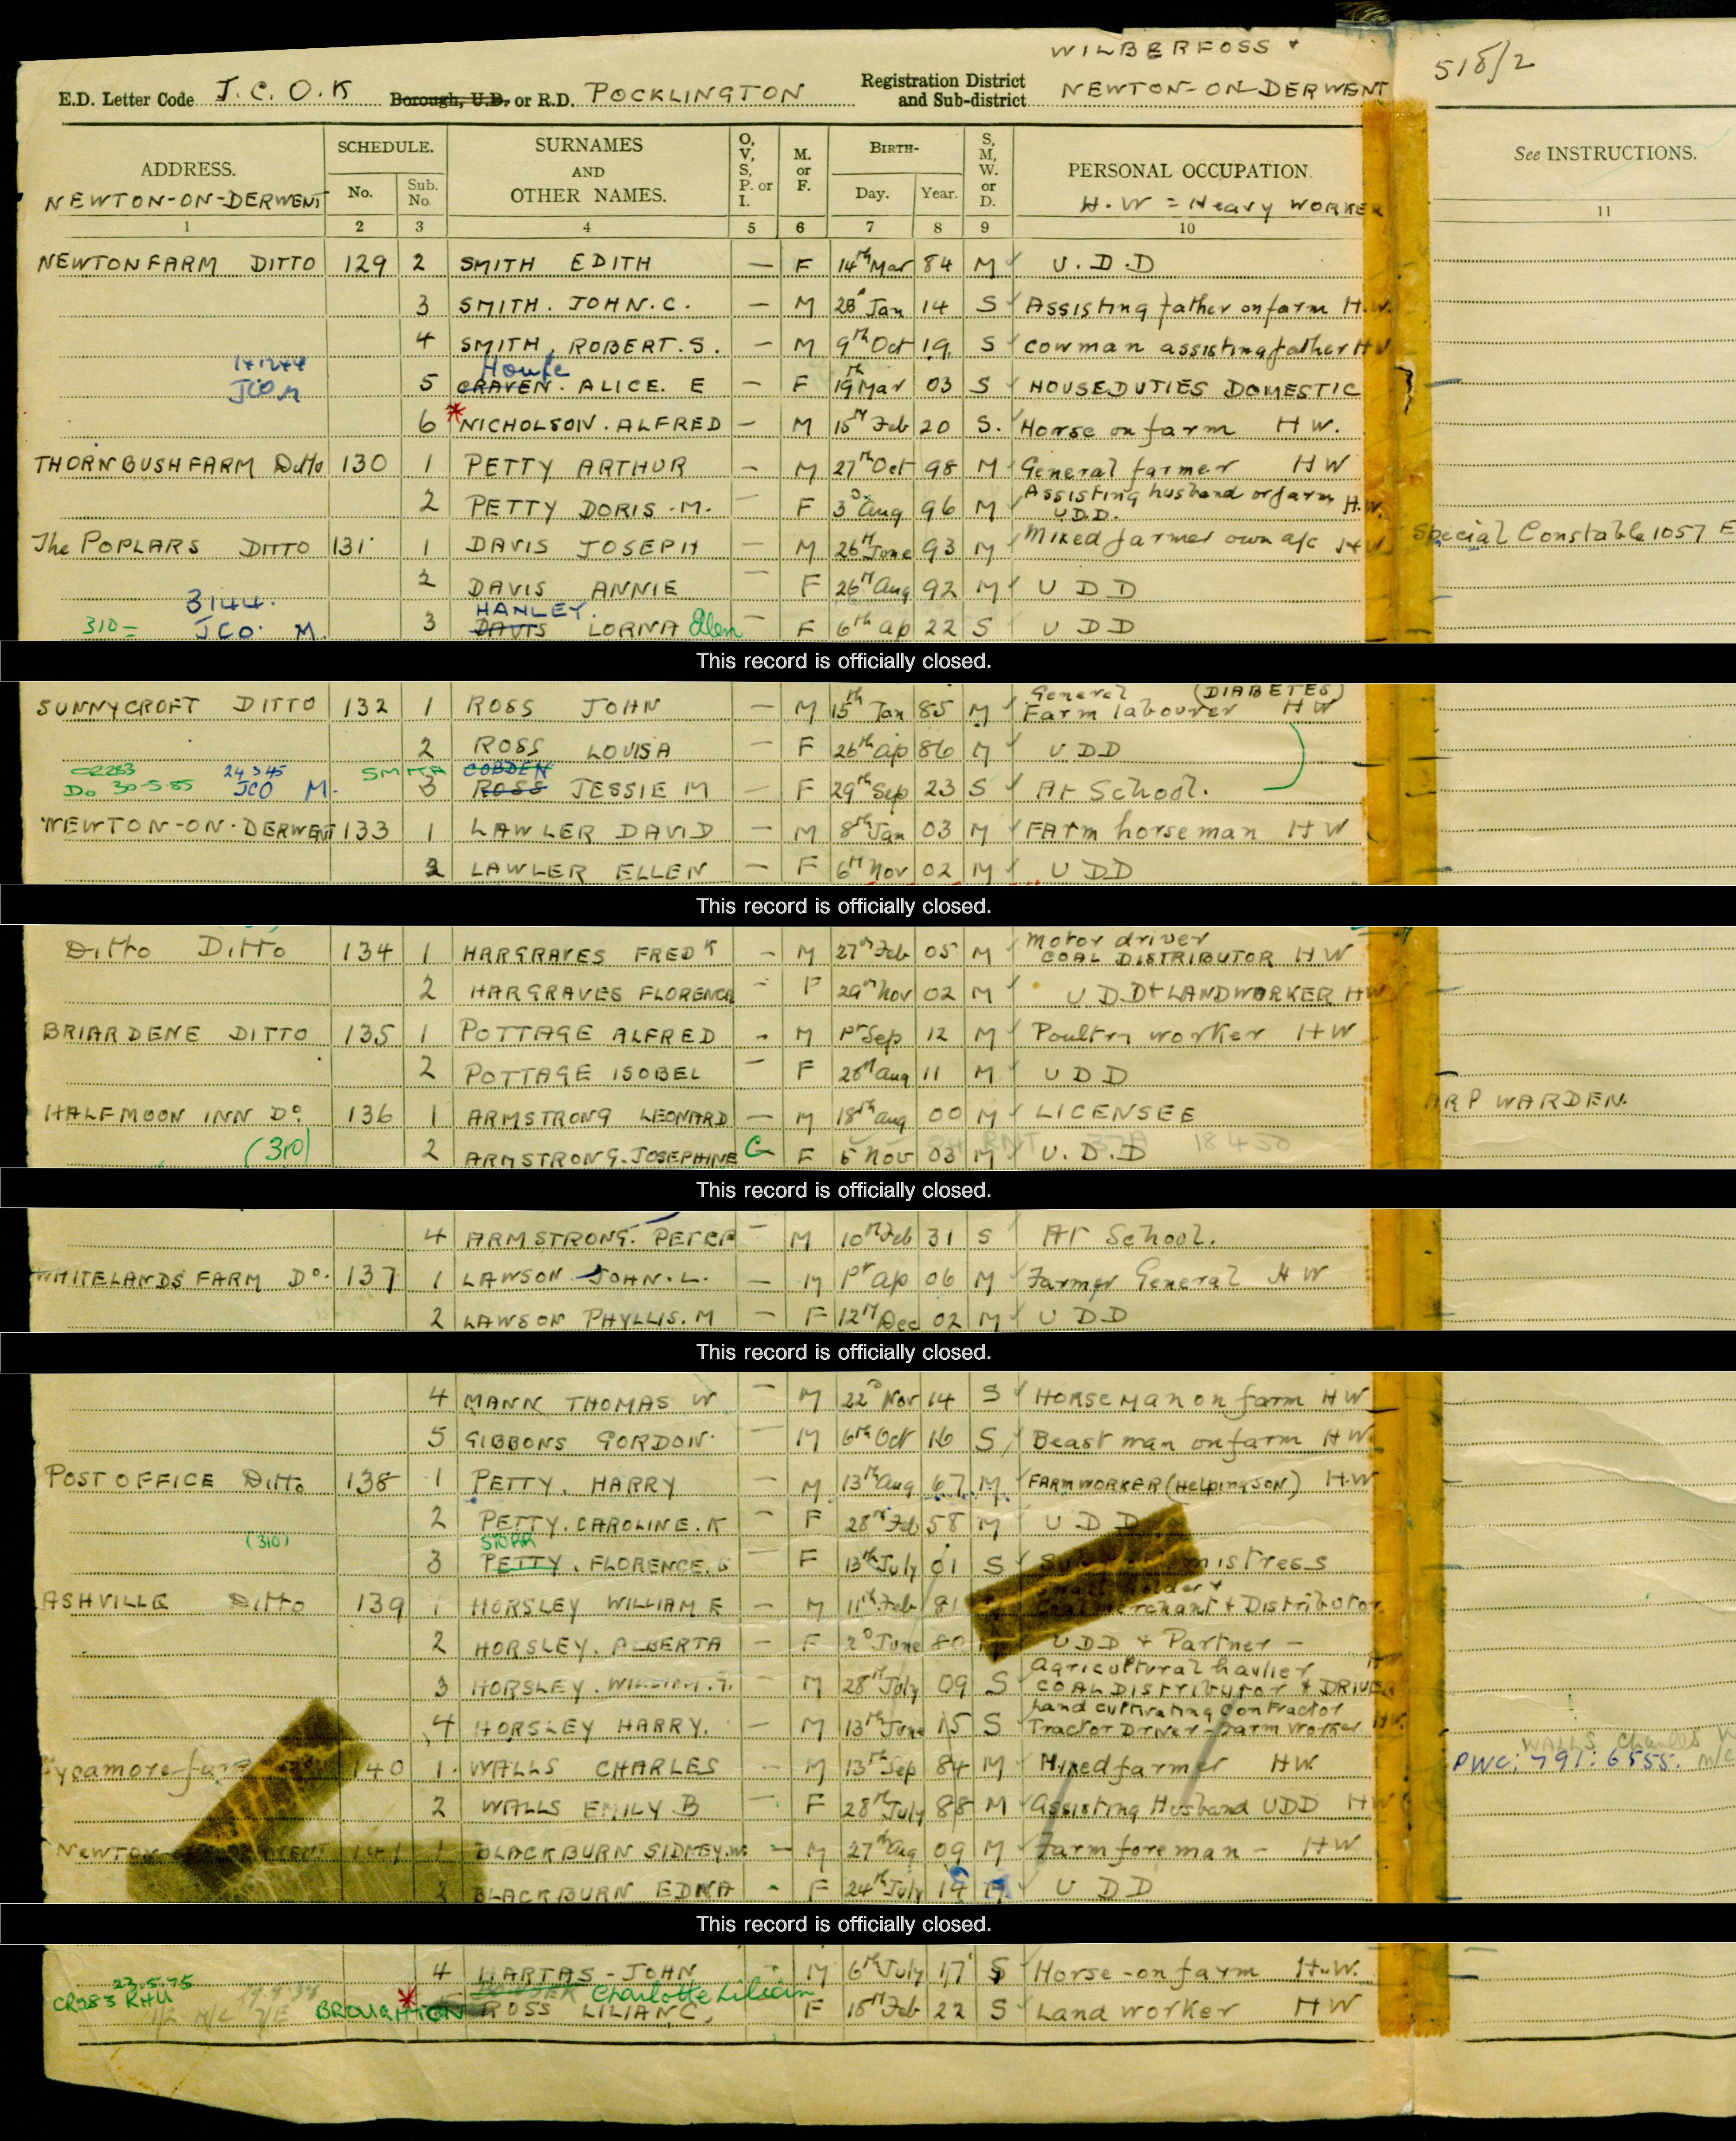 WILBERFOSS +
E.D. Letter Code J.C.O.K Borough, U.D. or R.D. POCKLINGTON Registration District and Sub-district NEWTON-ON-DERWENT 518/2
ADDRESS. SCHEDULE. SURNAMES AND OTHER NAMES. O, V, S, P. or I. M. or F. BIRTH- S, M, W. or D. PERSONAL OCCUPATION. See INSTRUCTIONS.
NEWTON-ON-DERWENT No. Sub. No. Day. Year. H.W = Heavy WORKER
1 2 3 4 5 6 7 8 9 10 11
NEWTON FARM DITTO 129 2 SMITH EDITH — F 14th Mar 84 M U.D.D
3 SMITH. JOHN.C. — M 28th Jan 14 S Assisting father on farm H.W.
4 SMITH. ROBERT.S. — M 9th Oct 19 S Cowman assisting father HW
Houfe
JCOM 5 CRAVEN. ALICE. E — F 19th Mar 03 S HOUSEDUTIES DOMESTIC
6 *NICHOLSON. ALFRED — M 15th Feb 20 S. Horse on farm H W.
THORNBUSH FARM Ditto 130 1 PETTY ARTHUR — M 27th Oct 98 M General farmer HW
2 PETTY DORIS.M. — F 3d Aug 96 M Assisting husband on farm H.W. U.D.D.
The POPLARS DITTO 131 1 DAVIS JOSEPH — M 26th June 93 M Mixed farmer own a/c HW Special Constable 1057 E
2 DAVIS ANNIE — F 26th Aug 92 M U D D
3144. HANLEY.
310= JCO. M. 3 DAVIS LORNA Ellen — F 6th ap 22 S U D D
This record is officially closed.
SUNNYCROFT DITTO 132 1 ROSS JOHN — M 15th Jan 85 M General Farm labourer (DIABETES) HW
2 ROSS LOUISA — F 26th ap 86 M U DD
CR283 24345 SMITH COBDEN
Do 30-5-85 JCO M. 3 ROSS JESSIE M — F 29th Sep 23 S At School.
NEWTON-ON-DERWENT 133 1 LAWLER DAVID — M 8th Jan 03 M FArm horseman HW
2 LAWLER ELLEN — F 6th Nov 02 M U DD
This record is officially closed.
Ditto Ditto 134 1 HARGRAVES FREDK — M 27th Feb 05 M motor driver COAL DISTRIBUTOR HW
2 HARGRAVES FLORENCE — F 29th Nov 02 M U DD + LANDWORKER HW
BRIARDENE DITTO 135 1 POTTAGE ALFRED — M 1st Sep 12 M Poultry worker HW
2 POTTAGE ISOBEL — F 28th Aug 11 M U D D
HALFMOON INN Do. 136 1 ARMSTRONG LEONARD — M 18th aug 00 M LICENSEE ARP WARDEN.
(310) 2 ARMSTRONG. JOSEPHINE G F 5 Nov 03 M U.D.D 18 4 50
This record is officially closed.
4 ARMSTRONG. PETER — M 10th Feb 31 S At School.
WHITELANDS FARM Do. 137 1 LAWSON JOHN.L. — M 1st ap 06 M Farmer General HW
2 LAWSON PHYLLIS.M — F 12th Dec 02 M U DD
This record is officially closed.
4 MANN THOMAS W — M 22d Nov 14 S HORSEMAN on farm HW
5 GIBBONS GORDON — M 6th Oct 16 S Beast man on farm HW
POST OFFICE Ditto 138 1 PETTY. HARRY — M 13th Aug 67 M FARMWORKER (Helping SON) HW
2 PETTY. CAROLINE.K — F 28th Feb 58 M U D D
(310) STORR
3 PETTY. FLORENCE. F 13th July 01 S mistress
ASHVILLE Ditto 139 1 HORSLEY WILLIAM E — M 11th Feb 81 Small holder + Coal merchant + Distributor
2 HORSLEY. ALBERTA — F 2d June 80 UDD + Partner —
3 HORSLEY. WILLIAM. — M 28th July 09 S Agricultural haulier COAL DISTRIBUTOR & DRIVER
4 HORSLEY HARRY. — M 13th June 15 S Land cultivating Contractor Tractor Driver - Farm Worker HW
WALLS Charles W
Sycamore farm 140 1. WALLS CHARLES — M 13th Sep 84 M Mixed farmer HW. PWC: 791: 6555. M/C
2 WALLS EMILY B — F 28th July 88 M Assisting Husband UDD HW
Newton 141 1 BLACKBURN SIDNEY.W. — M 27th Aug 09 M Farm foreman — HW
2 BLACKBURN EDNA - F 24th July 14 M U DD
This record is officially closed.
4 HARTAS - JOHN - M 6th July 17 S Horse-on farm H.W.
23.5.75 Charlotte Lilian
CR283 RHU BROUGHTON * ROSS LILIAN C, F 15th Feb 22 S Land worker HW